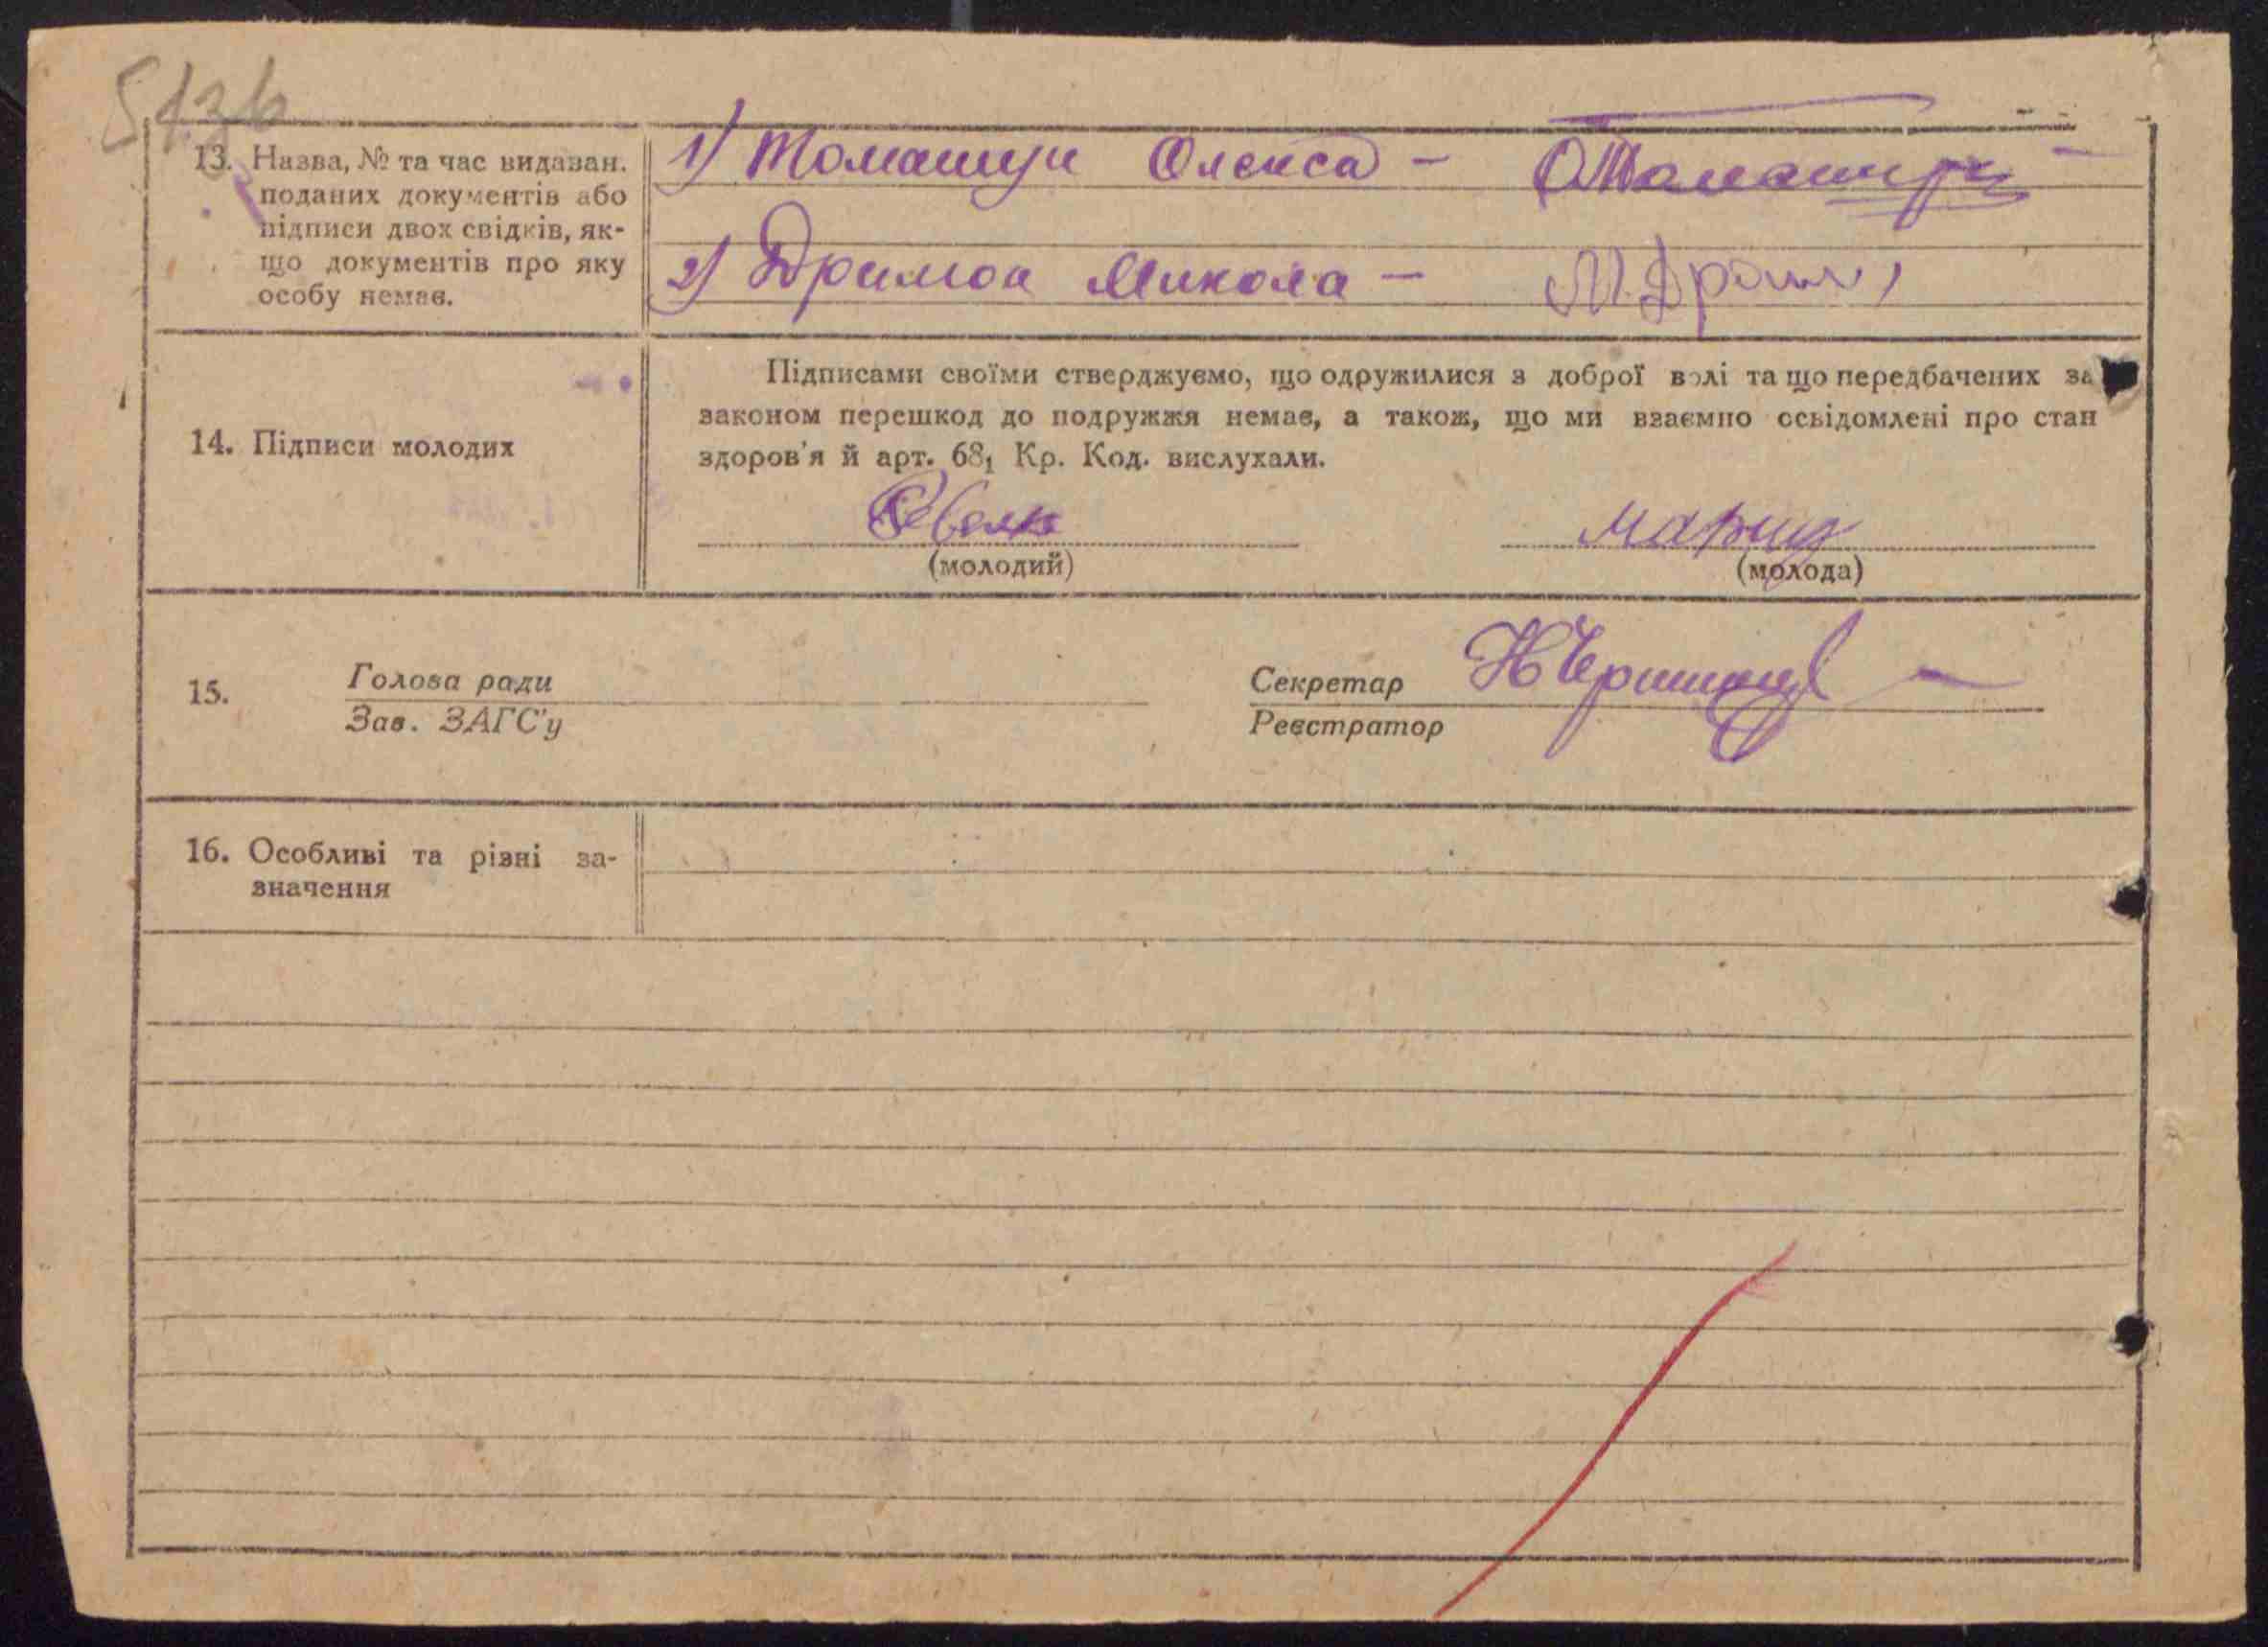 13. Назва, № та час видаван.
поданих документів або
підписи двох свідків, як-
що документів про яку
особу немає.
1) Томашук Олекса -
2) Микола -
14. Підписи молодих
Підписами своїми стверджуємо, що одружилися з доброї волі та що передбачених за
законом перешкод до подружжя немає, а також, що ми взаємно освідомлені про стан
здоров'я й арт. 68₁ Кр. Код. вислухали.
(молодий)
Мария
(молода)
15.
Голова ради
Зав. ЗАГС'у
Секретар
Реєстратор
16. Особливі та різні за-
значення